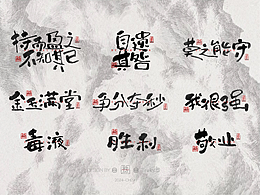 持而盈之
不如其已
自遗
其咎
莫之能守
金玉满堂
争分夺秒
我很强
毒液
胜利
敬业